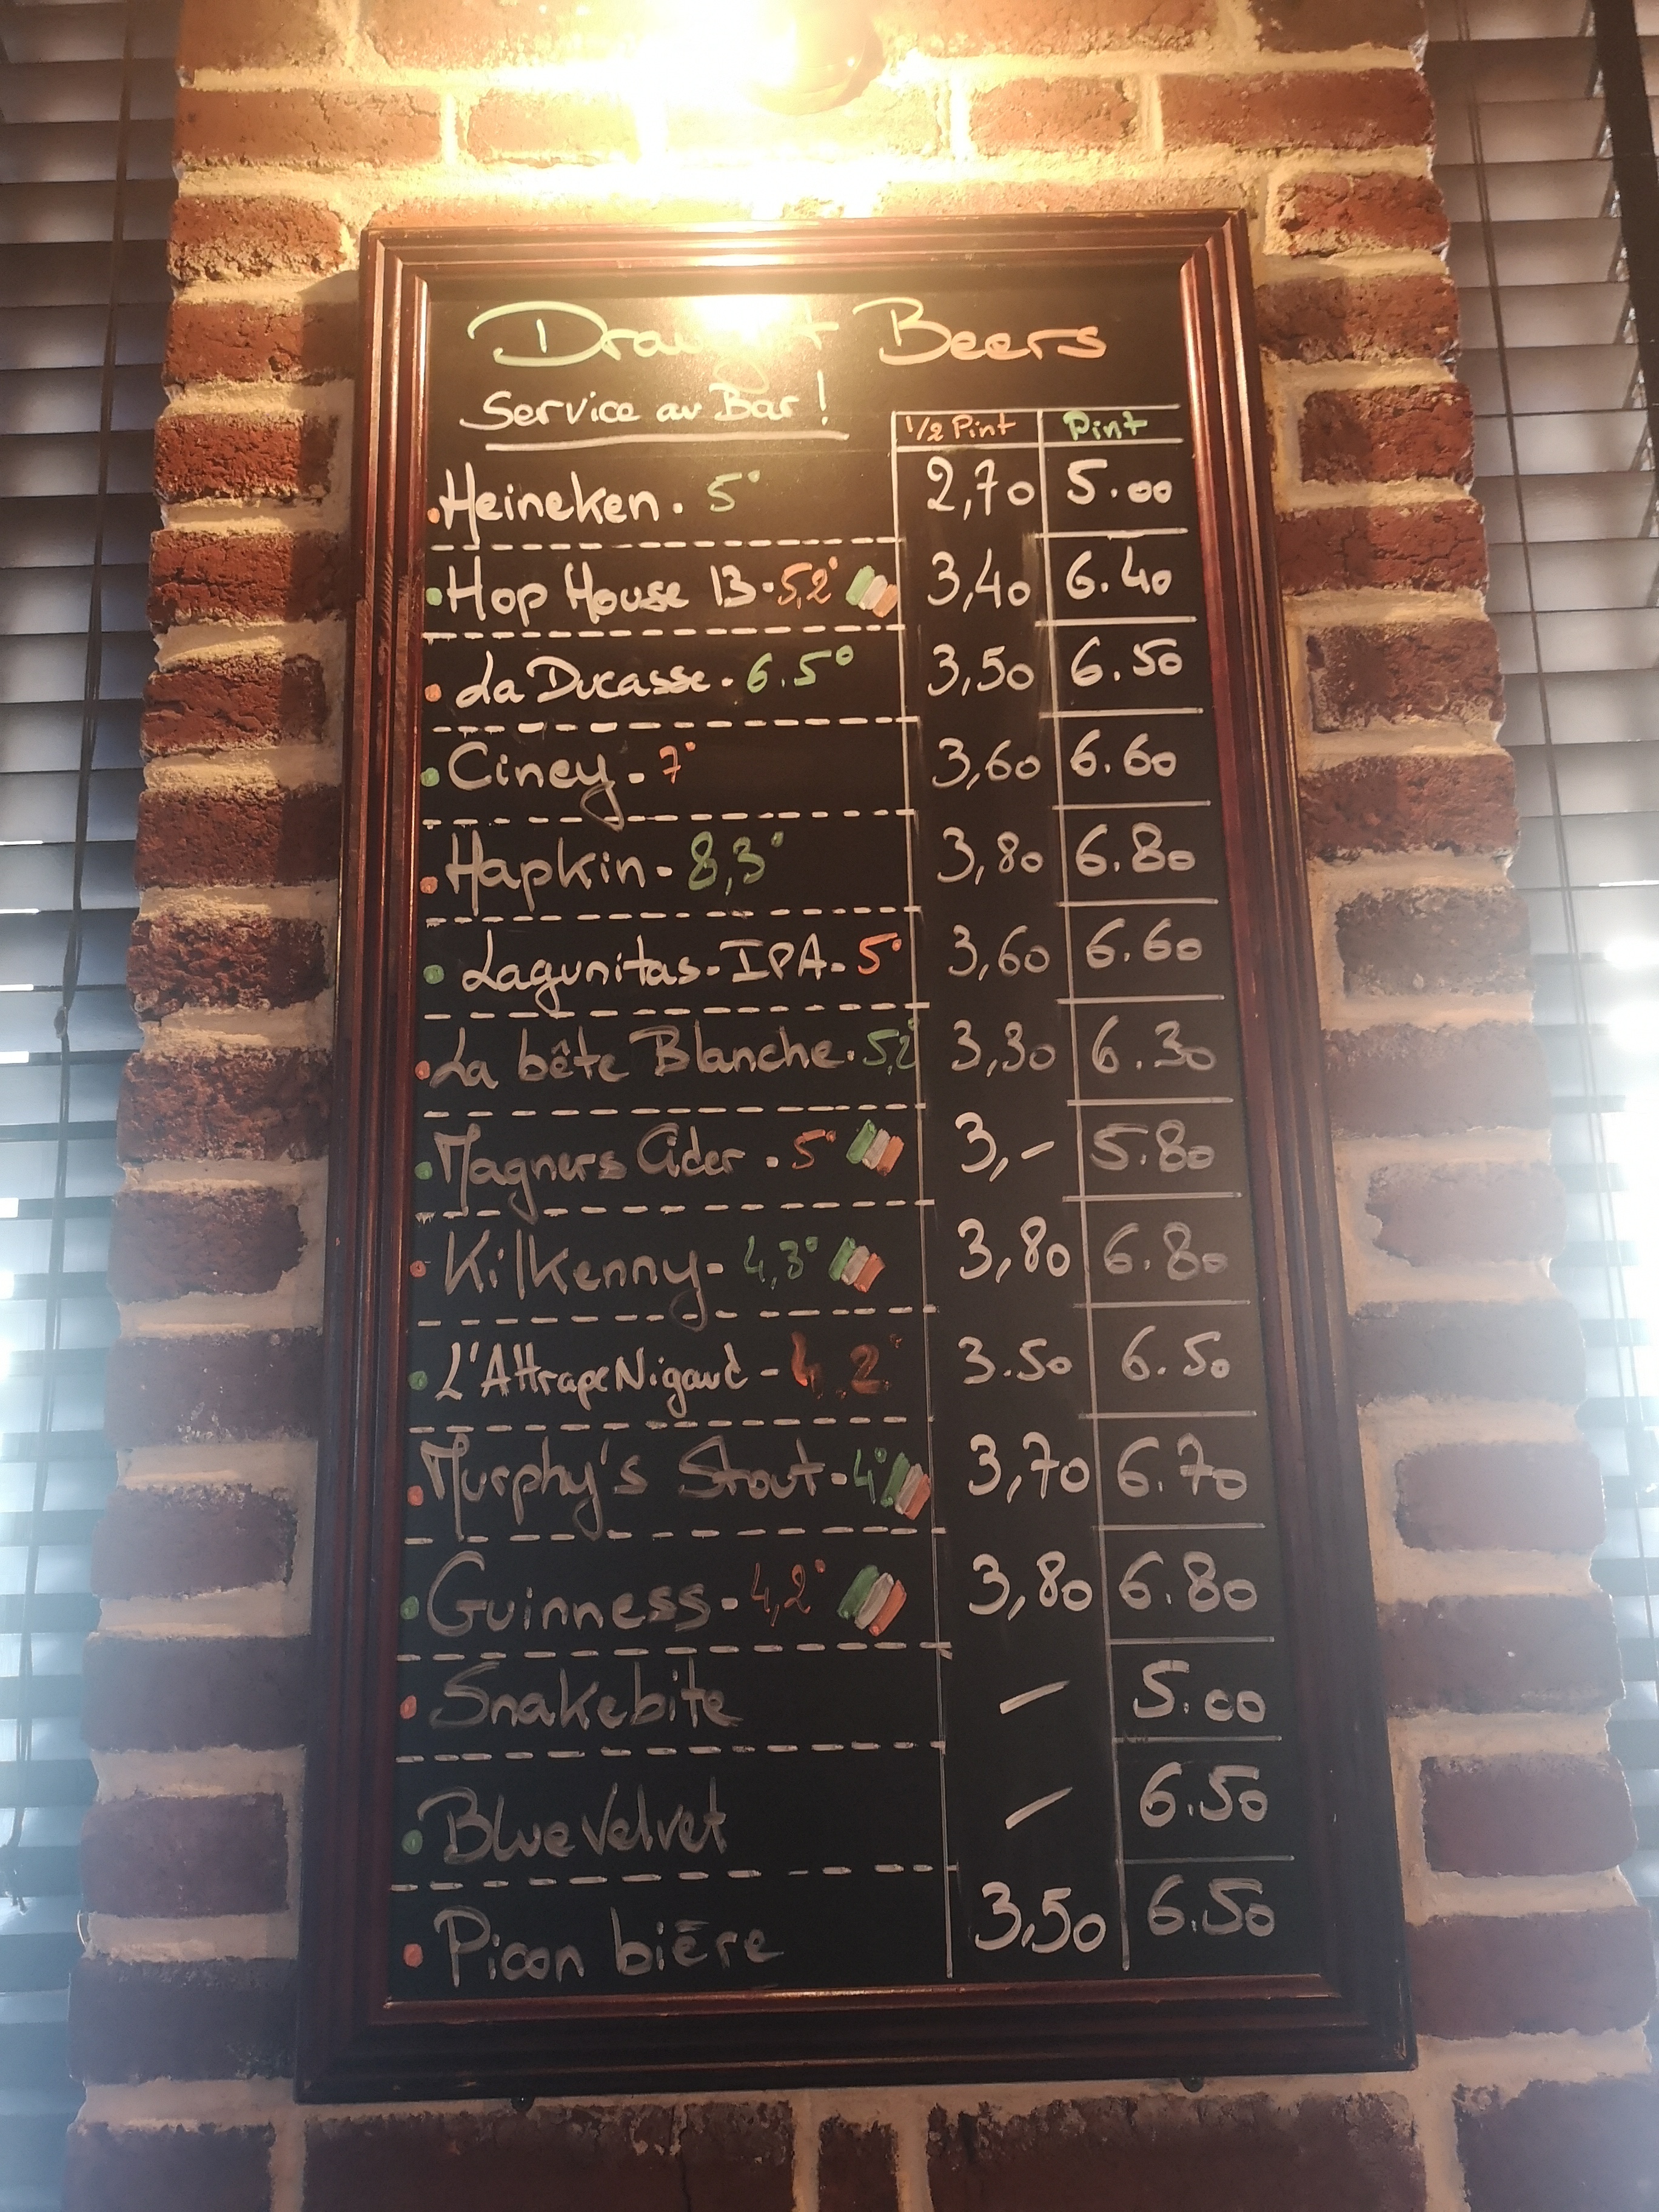 Draught Beers
Service au Bar!
1/2 Pint Pint
Heineken. 5° 2,70 5.00
Hop House 13. 5,2° 3,40 6.40
La Ducasse. 6.5° 3,50 6.50
Ciney - 7° 3,60 6.60
Hapkin - 8,3° 3,80 6.80
Lagunitas - IPA - 5° 3,60 6.60
La bête Blanche. 5,2° 3,30 6.30
Magners Cider . 5° 3,- 5.80
Kilkenny - 4,3° 3,80 6.80
L'Attrape Nigaud - 4.2° 3.50 6.50
Murphy's Stout - 4° 3,70 6.70
Guinness - 4,2° 3,80 6.80
Snakebite - 5.00
Blue Velvet - 6.50
Picon bière 3,50 6.50